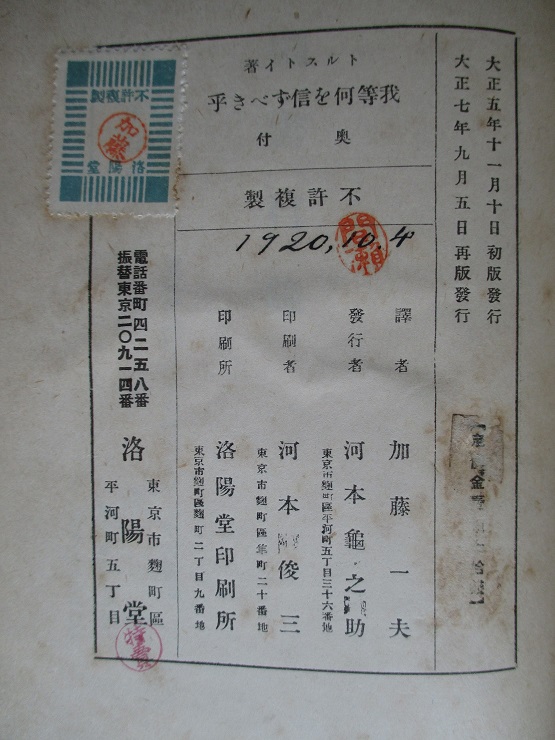 大正五年十一月十日初版發行
大正七年九月五日再版發行
トルストイ著
我等何を信ずべき乎
奥付
不許複製
1920,10.4
譯者 加藤一夫
發行者 河本龜之助
東京市麹町區平河町五丁目三十六番地
印刷者 河本俊三
東京市麹町區隼町二十番地
印刷所 洛陽堂印刷所
東京市麹町區麹町二丁目九番地
東京市麹町區
平河町五丁目
洛陽堂
電話番町四二五八番
振替東京二〇九一四番
不許複製
加藤
洛陽堂